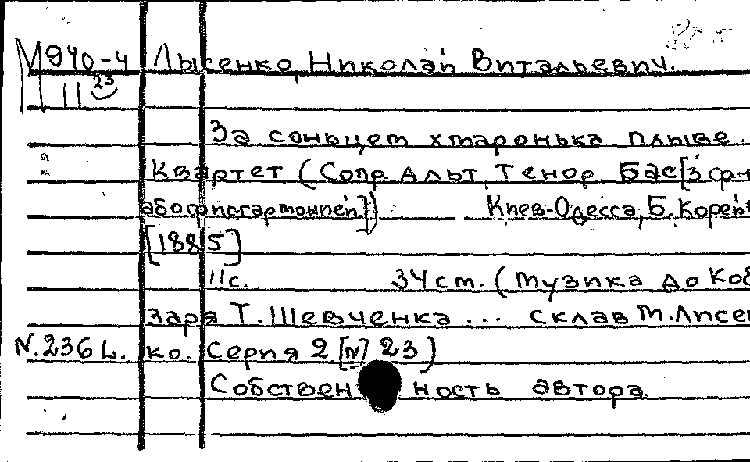 М 940-4 Лысенко, Николай Витальевич.
11 23
За сонцем хмаронька пливе.
Квартет (Сопр. Альт, Тенор, Бас [з ф-п
або фисгармонией]) Киев-Одесса, Б. Корейв
[1885]
11 с. 34 см. (Музика до Коб
заря Т. Шевченка... склав М. Лисен
N. 236 L. ко. Серия 2 [N] 23)
Собственность автора.